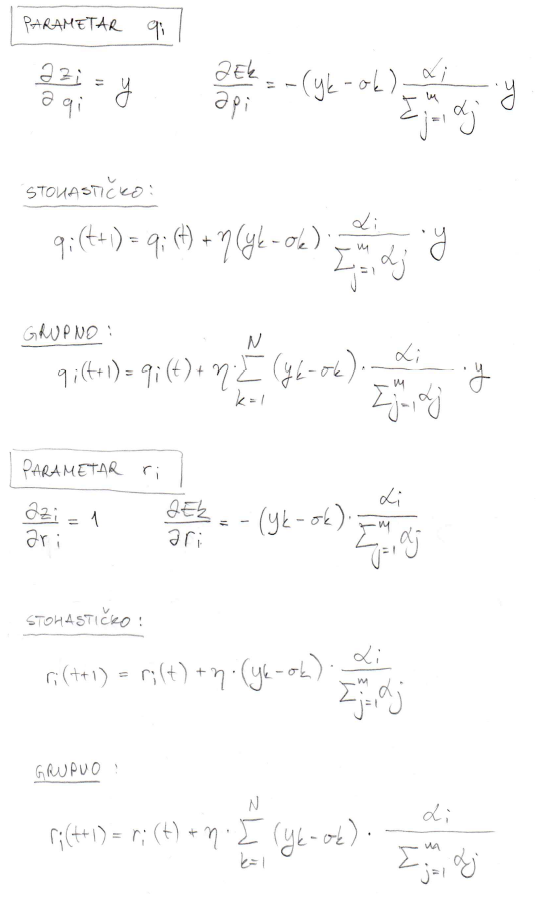 PARAMETAR qi
∂zi/∂qi = y ∂Ek/∂pi = -(yk-ok) αi/∑_{j=1}^{m} αj · y
STOHASTIČKO:
qi(t+1) = qi(t) + η(yk-ok) · αi/∑_{j=1}^{m} αj · y
GRUPNO:
qi(t+1) = qi(t) + η · ∑_{k=1}^{N} (yk-ok) · αi/∑_{j=1}^{m} αj · y
PARAMETAR ri
∂zi/∂ri = 1 ∂Ek/∂ri = -(yk-ok) · αi/∑_{j=1}^{m} αj
STOHASTIČKO:
ri(t+1) = ri(t) + η · (yk-ok) · αi/∑_{j=1}^{m} αj
GRUPNO:
ri(t+1) = ri(t) + η · ∑_{k=1}^{N} (yk-ok) · αi/∑_{j=1}^{m} αj